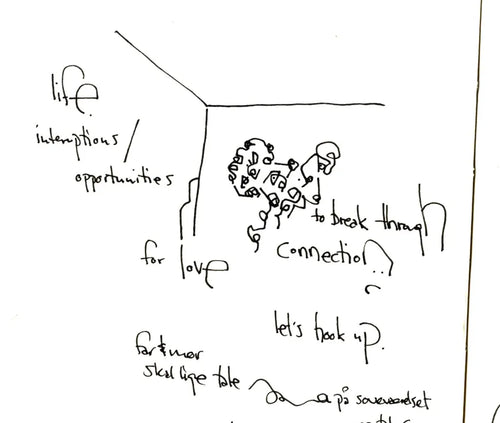 life.
interruptions /
opportunities
for love
to break through
connection..
let's hook up.
far & mor
skal lige tale
på soveværelset